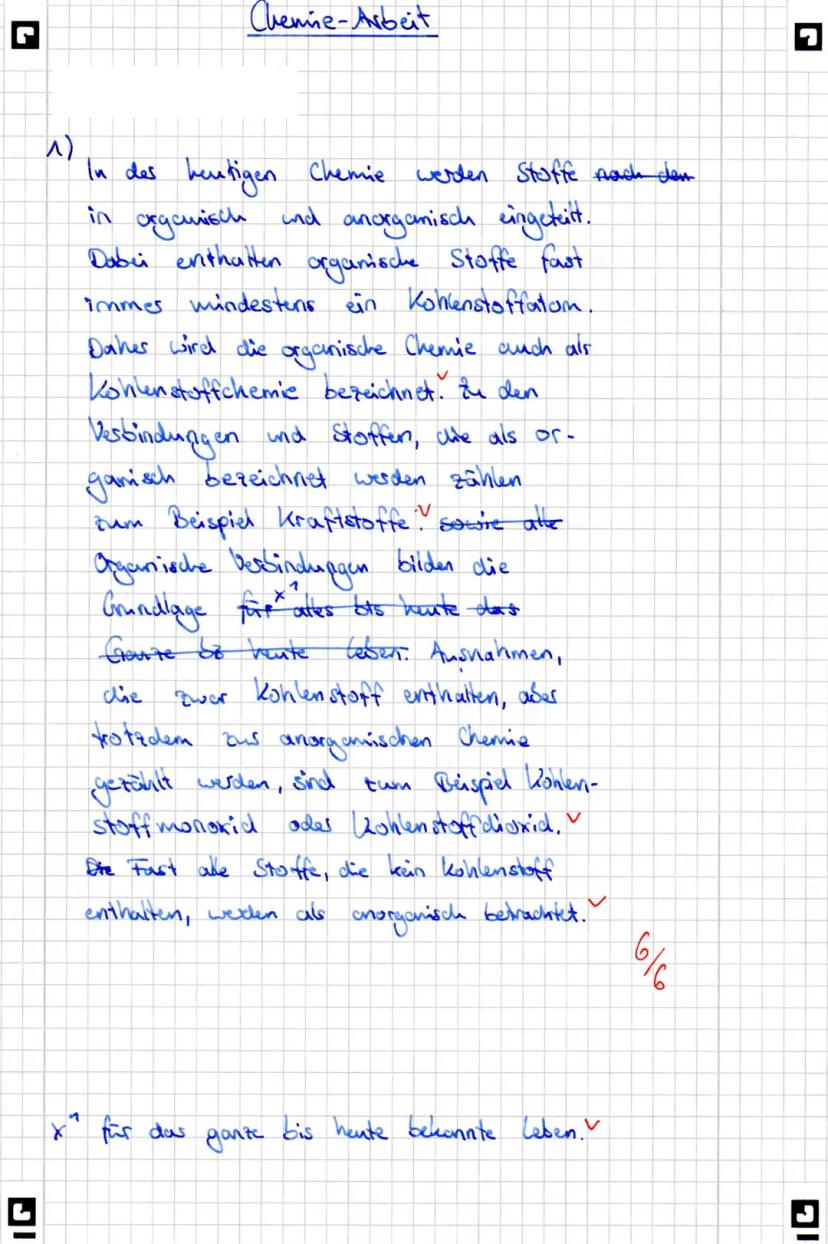 Chemie-Arbeit
1)
In der heutigen Chemie werden Stoffe nach den
in organisch und anorganisch eingeteilt.
Dabei enthalten organische Stoffe fast
immer mindestens ein Kohlenstoffatom.
Daher wird die organische Chemie auch als
Kohlenstoffchemie bezeichnet. Zu den
Verbindungen und Stoffen, die als or-
ganisch bezeichnet werden zählen
zum Beispiel Kraftstoffe. sowie alle
Organische Verbindungen bilden die
Grundlage für x¹ alles bis heute das
Ganze bis heute Leben. Ausnahmen,
die zwar Kohlenstoff enthalten, aber
trotzdem zur anorganischen Chemie
gezählt werden, sind zum Beispiel Kohlen-
stoffmonoxid oder Kohlenstoffdioxid.
Die Fast alle Stoffe, die kein Kohlenstoff
enthalten, werden als anorganisch betrachtet.
6/6
x¹ für das ganze bis heute bekannte Leben.